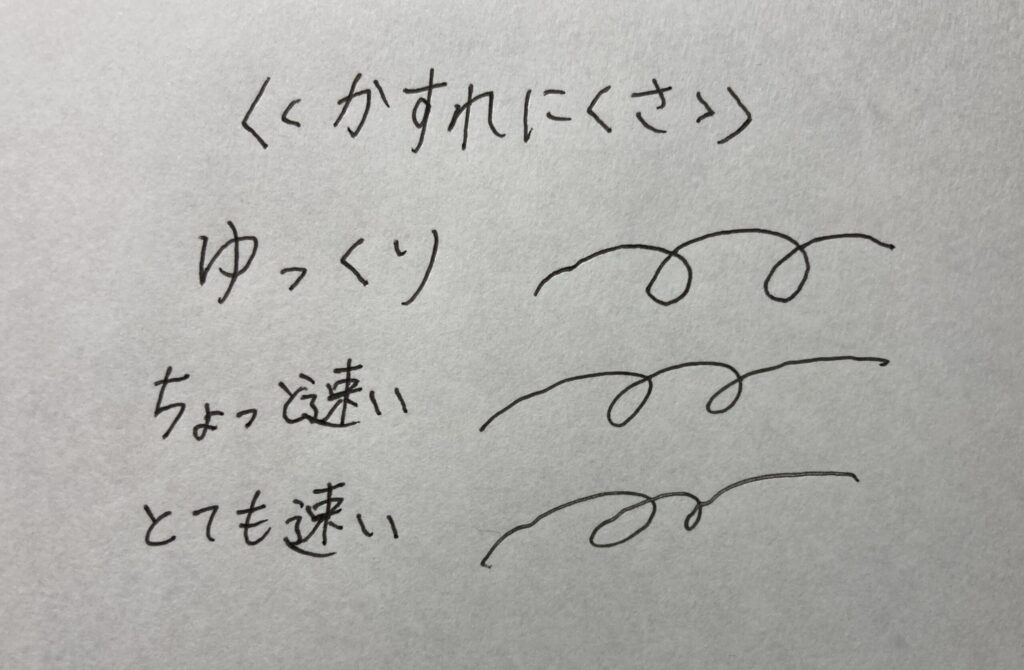 〈〈かすれにくさ〉〉
ゆっくり
ちょっと速い
とても速い